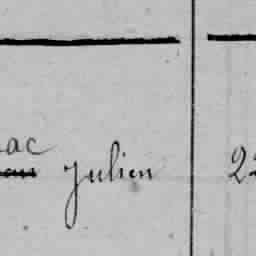 ac Julien 22